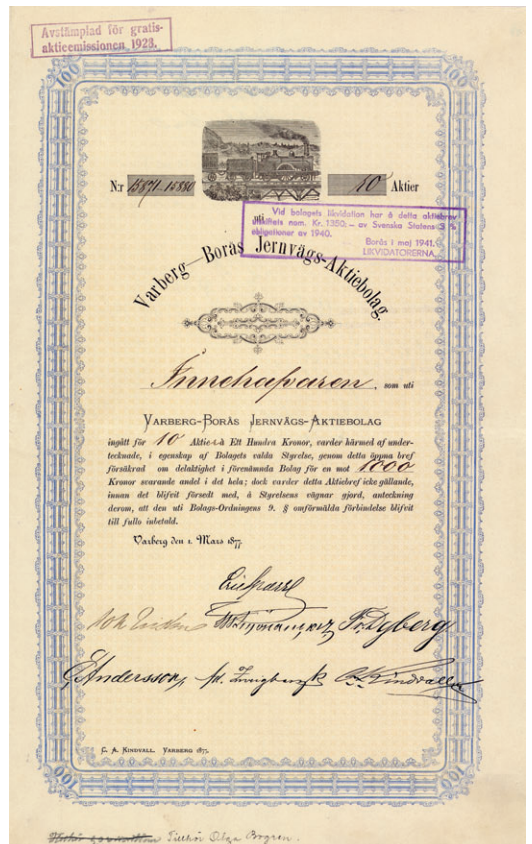 Avstämplad för gratis-
aktieemissionen 1928.
100 100
N:r 15871-15880 10 Aktier
uti
Vid bolagets likvidation har å detta aktiebrev
utskiftats nom. Kr. 1350:– av Svenska Statens 3 %
obligationer av 1940.
Borås i maj 1941.
LIKVIDATORERNA.
Varberg–Borås Jernvägs-Aktiebolag.
Innehafvaren, som uti
VARBERG-BORÅS JERNVÄGS-AKTIEBOLAG
ingått för 10 Aktie-r à Ett Hundra Kronor, varder härmed af under-
tecknade, i egenskap af Bolagets valda Styrelse, genom detta öppna bref
försäkrad om delaktighet i förenämnda Bolag för en mot 1000
Kronor svarande andel i det hela; dock varder detta Aktiebref icke gällande,
innan det blifvit försedt med, å Styrelsens vägnar gjord, anteckning
derom, att den uti Bolags-Ordningens 9. § omförmälda förbindelse blifvit
till fullo inbetald.
Varberg den 1. Mars 1877.
F. Dyberg
C. Andersson
C. A. Kindvall
C. A. KINDVALL. VARBERG 1877.
100 100
Tillhör Olga Bogren.